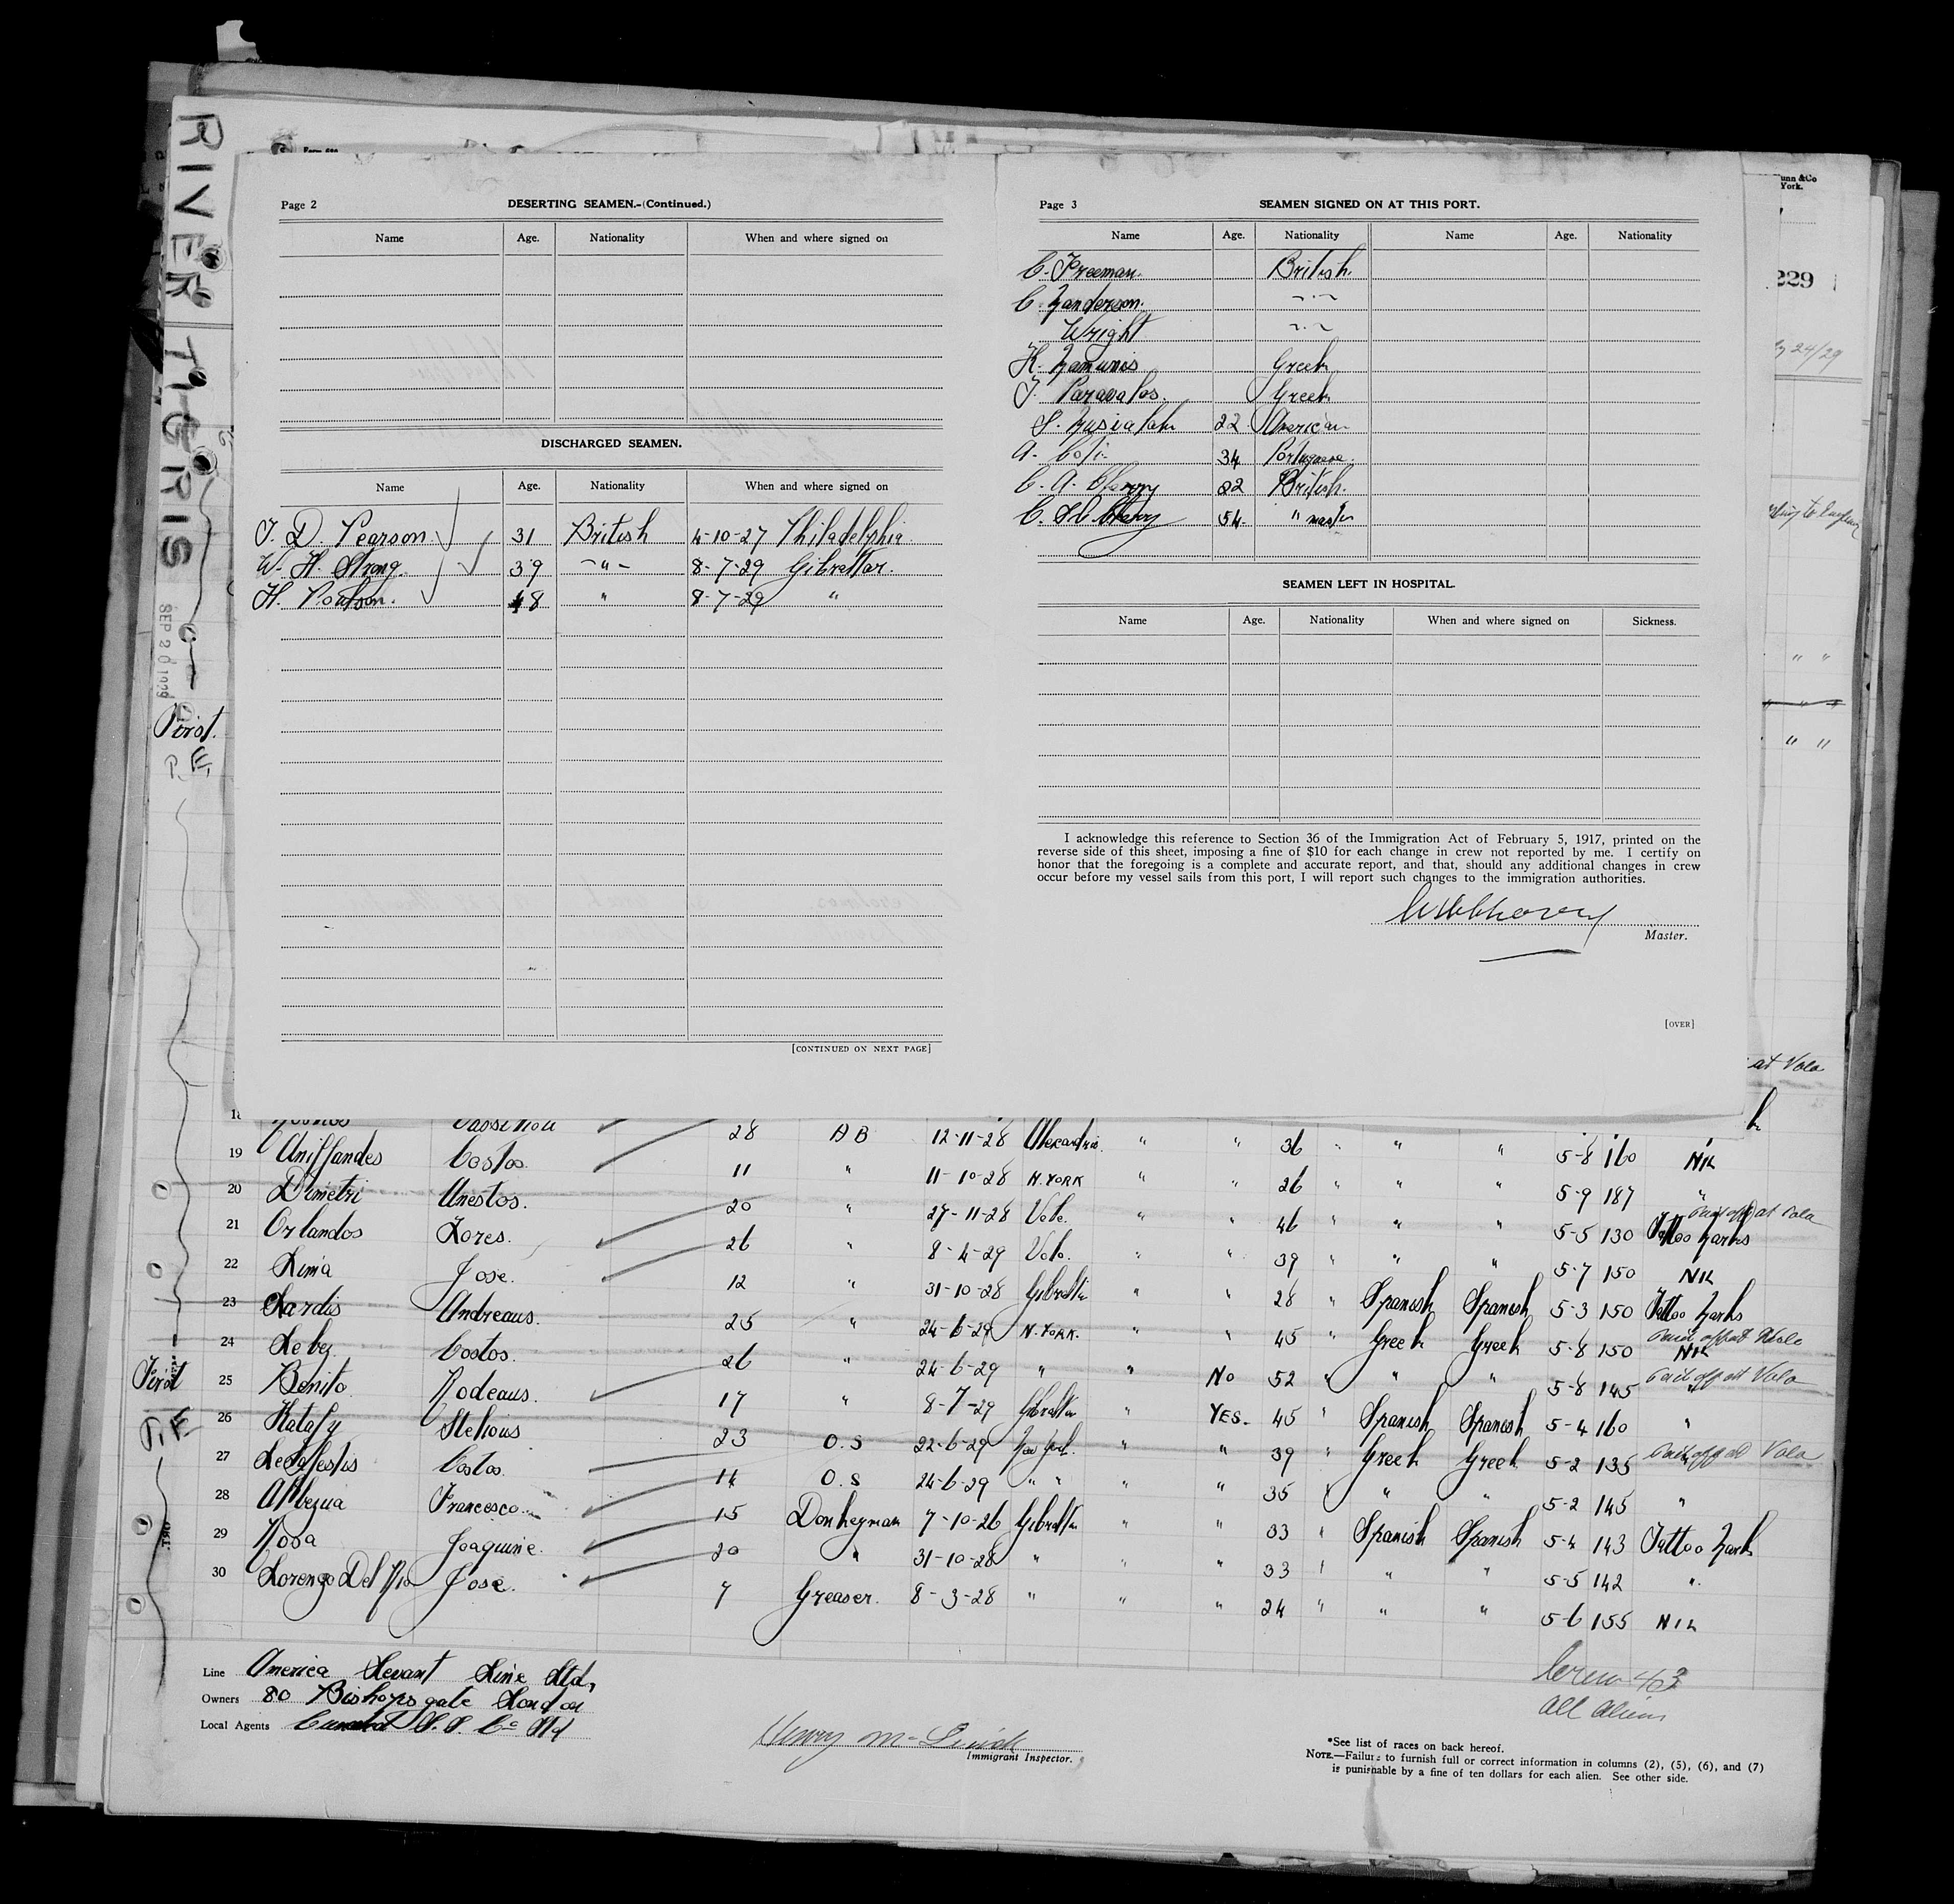 RIVER TIGRIS
SEP 20 1929
First
Page 2
DESERTING SEAMEN.-(Continued.)
Name Age. Nationality When and where signed on
DISCHARGED SEAMEN.
Name Age. Nationality When and where signed on
J. D. Pearson. 31 British 4-10-27 Philadelphia
W. H. Strong. 39 -"- 8-7-29 Gibraltar.
H. Poulson. 48 " 8-7-29 "
[CONTINUED ON NEXT PAGE]
Page 3
SEAMEN SIGNED ON AT THIS PORT.
Name Age. Nationality Name Age. Nationality
C. Freeman. British
Wright
Greek
Greek
22 American
A. 34 Portuguese.
C. A. 22 British.
54 " master
SEAMEN LEFT IN HOSPITAL.
Name Age. Nationality When and where signed on Sickness.
I acknowledge this reference to Section 36 of the Immigration Act of February 5, 1917, printed on the
reverse side of this sheet, imposing a fine of $10 for each change in crew not reported by me. I certify on
honor that the foregoing is a complete and accurate report, and that, should any additional changes in crew
occur before my vessel sails from this port, I will report such changes to the immigration authorities.
Master.
[OVER]
unn & Co
York.
229
24/29
at Volo
28 AB 12-11-28 Alexandria " " 36 " " " 5-8 160 Nil
19 Costas. 11 " 11-10-28 N. YORK " " 26 " " " 5-9 187 "
20 Dimetri Anestos. 20 " 27-11-28 Volo. " " 46 " " " 5-5 130 Tattoo Marks
paid off at Volo
21 Orlandos Lores. 26 " 8-4-29 Volo. " " 39 " " " 5-7 150 Nil
22 Lima Jose. 12 " 31-10-28 Gibraltar " " 28 " Spanish Spanish 5-3 150 Tattoo Marks
23 Lardis Andreaus. 25 " 24-6-29 N. YORK. " " 45 " Greek Greek 5-8 150 Nil
paid off at Volo
24 Costos. 26 " 24-6-29 " " No 52 " " " 5-8 145 "
paid off at Volo
First
25 Benito Rodeaus. 17 " 8-7-29 Gibraltar " YES. 45 " Spanish Spanish 5-4 160 "
26 Katafy Stelious 23 O.S 22-6-29 New York. " " 39 " Greek Greek 5-2 135
paid off at Volo
27 Costos. 14 O.S 24-6-29 " " " " 35 " " " 5-2 145 "
28 Francesco. 15 Donkeyman 7-10-26 Gibraltar " " 33 " Spanish Spanish 5-4 143 Tattoo Mark
29 Rosa Joaquine. 20 " 31-10-28 " " " 33 " " " 5-5 142 "
30 Lorenzo Del Rio Jose. 7 Greaser. 8-3-28 " " " 24 " " " 5-6 155 Nil
Line America Levant Line Ltd,
Owners 80 Bishopsgate London
Local Agents Cunard S.S. Co Ltd
Immigrant Inspector.
Crew 43
all aliens
*See list of races on back hereof.
NOTE.—Failure to furnish full or correct information in columns (2), (5), (6), and (7)
is punishable by a fine of ten dollars for each alien. See other side.